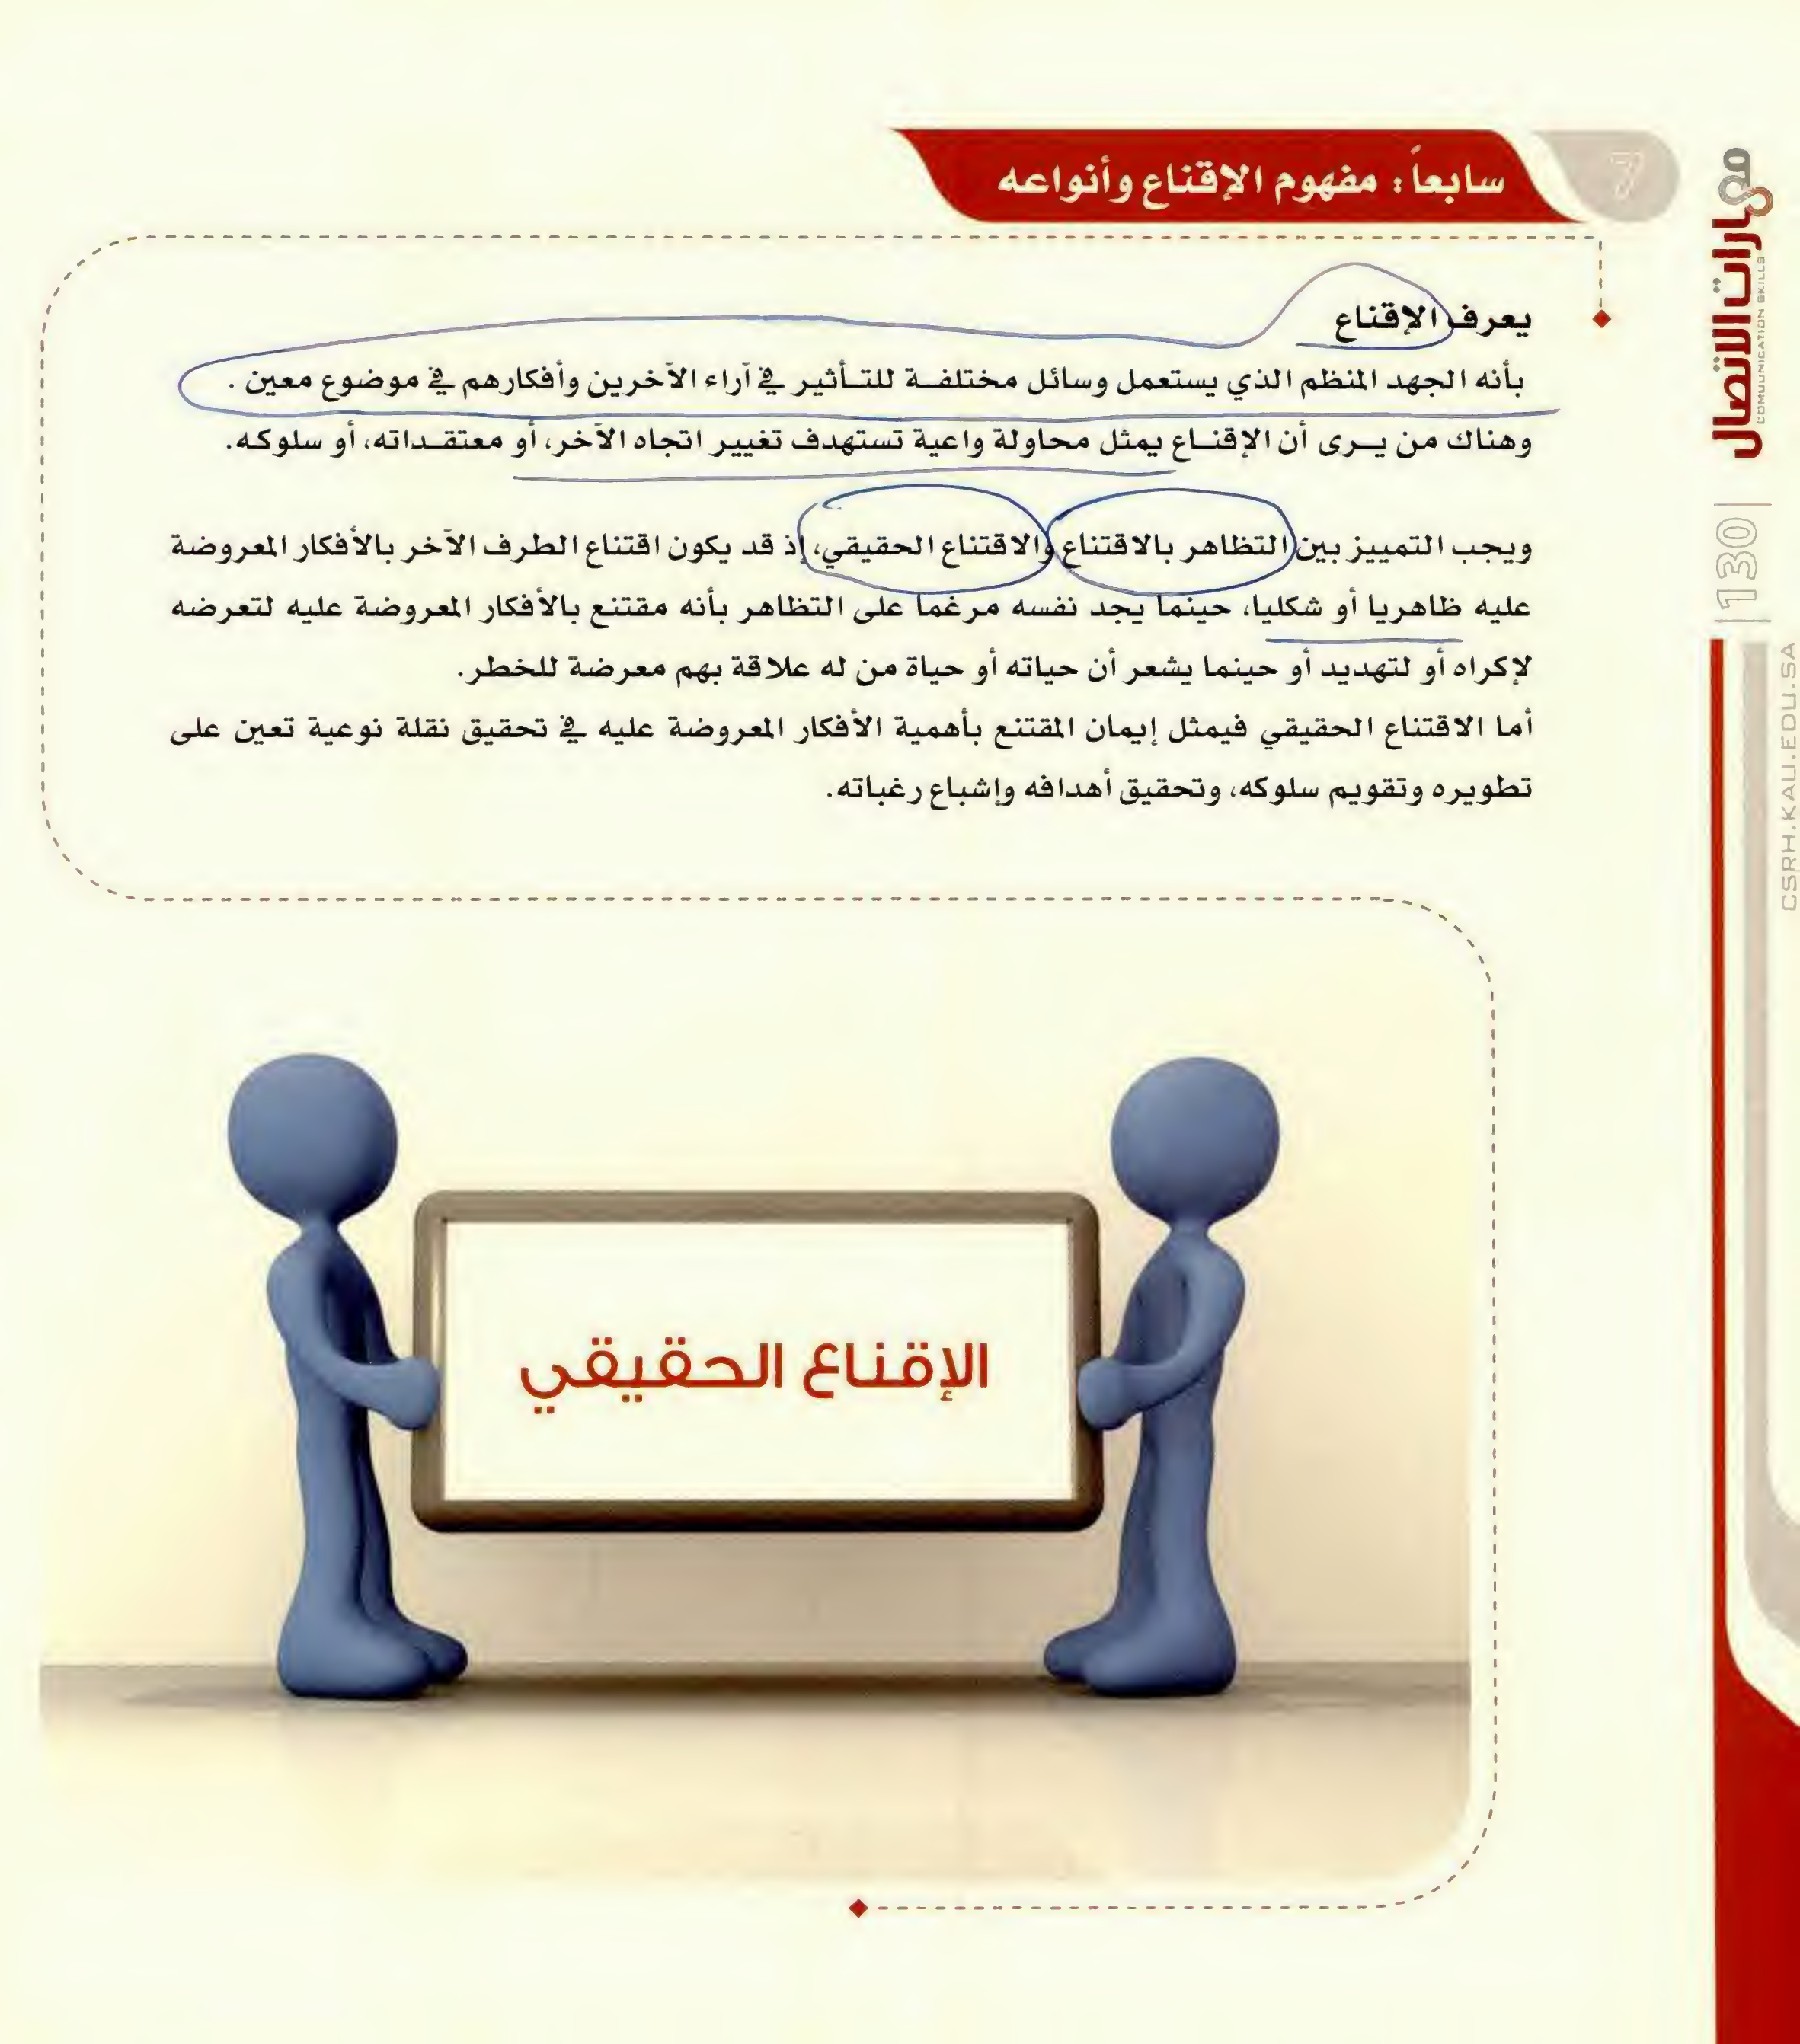 سابعاً: مفهوم الإقناع وأنواعه
7
يعرف الإقناع
بأنه الجهد المنظم الذي يستعمل وسائل مختلفة للتأثير في آراء الآخرين وأفكارهم في موضوع معين .
وهناك من يرى أن الإقناع يمثل محاولة واعية تستهدف تغيير اتجاه الآخر، أو معتقداته، أو سلوكه.
ويجب التمييز بين التظاهر بالاقتناع والاقتناع الحقيقي، إذ قد يكون اقتناع الطرف الآخر بالأفكار المعروضة
عليه ظاهريا أو شكليا، حينما يجد نفسه مرغما على التظاهر بأنه مقتنع بالأفكار المعروضة عليه لتعرضه
لإكراه أو لتهديد أو حينما يشعر أن حياته أو حياة من له علاقة بهم معرضة للخطر.
أما الاقتناع الحقيقي فيمثل إيمان المقتنع بأهمية الأفكار المعروضة عليه في تحقيق نقلة نوعية تعين على
تطويره وتقويم سلوكه، وتحقيق أهدافه وإشباع رغباته.
الإقناع الحقيقي
مهارات الاتصال
COMMUNICATION SKILLS
|130|
CSRH.KAU.EDU.SA